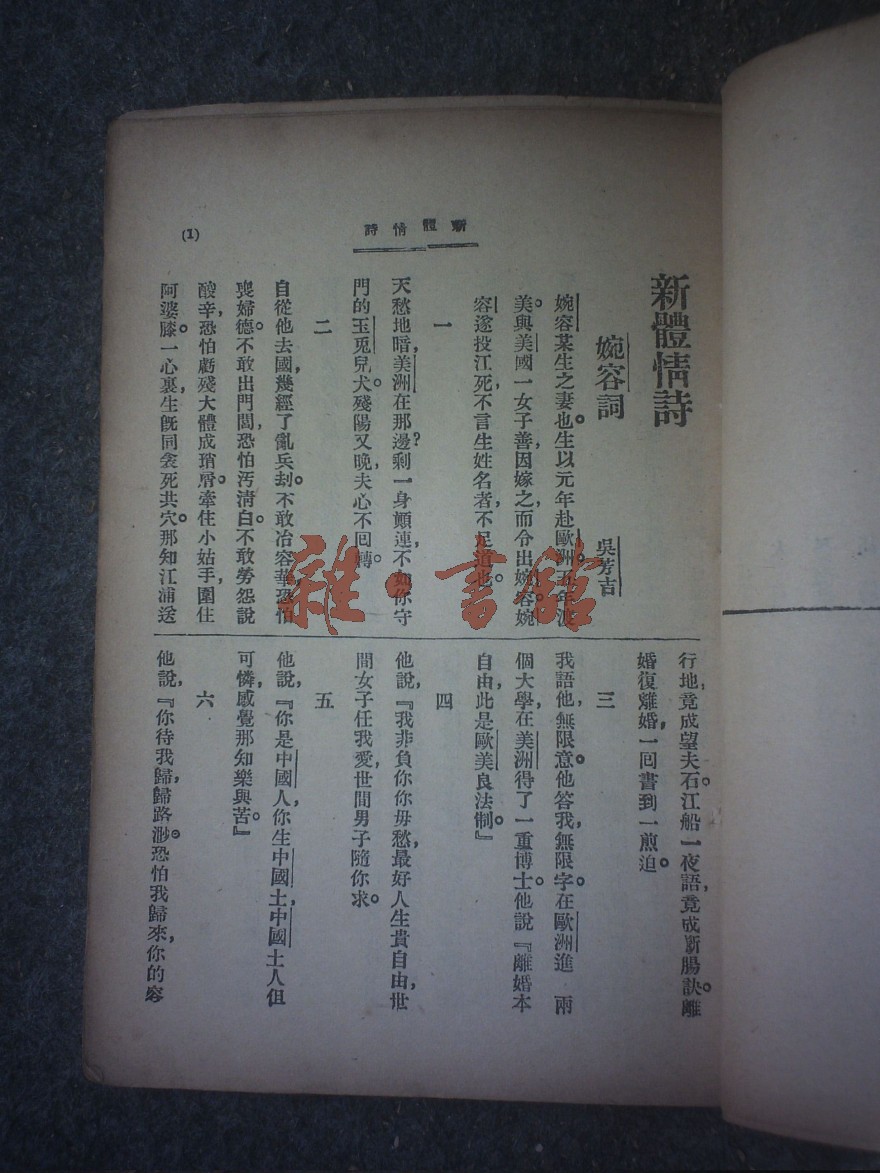 新體情詩
(1)
新體情詩
婉容詞
吳芳吉
婉容某生之妻也。生以元年赴歐洲。五年渡
美。與美國一女子善，因嫁之，而令出婉容，婉
容遂投江死，不言生姓名者，不足道也。
一
天愁地暗，美洲在那邊？剩一身顛連，不如你守
門的玉兎兒犬。殘陽又晚，夫心不回轉。
二
自從他去國，幾經了亂兵刦。不敢冶容華，恐怕
喪婦德。不敢出門閭，恐怕汚清白。不敢勞怨說
酸辛，恐怕虧殘大體成瑣屑。牽住小姑手，圍住
阿婆膝。一心裏，生旣同衾死共穴。那知江浦送
行地，竟成望夫石。江船一夜語，竟成斷腸訣。離
婚復離婚，一回書到一煎迫。
三
我語他，無限意。他答我，無限字。在歐洲進 兩
個大學，在美洲得了一重博士。他說，『離婚本
自由，此是歐美良法制。』
四
他說，『我非負你你毋愁，最好人生貴自由，世
間女子任我愛，世間男子隨你求。
五
他說，『你是中國人，你生中國土，中國土人但
可憐，感覺那知樂與苦。』
六
他說，『你待我歸，歸路渺。恐怕我歸來，你的容
雜·書館